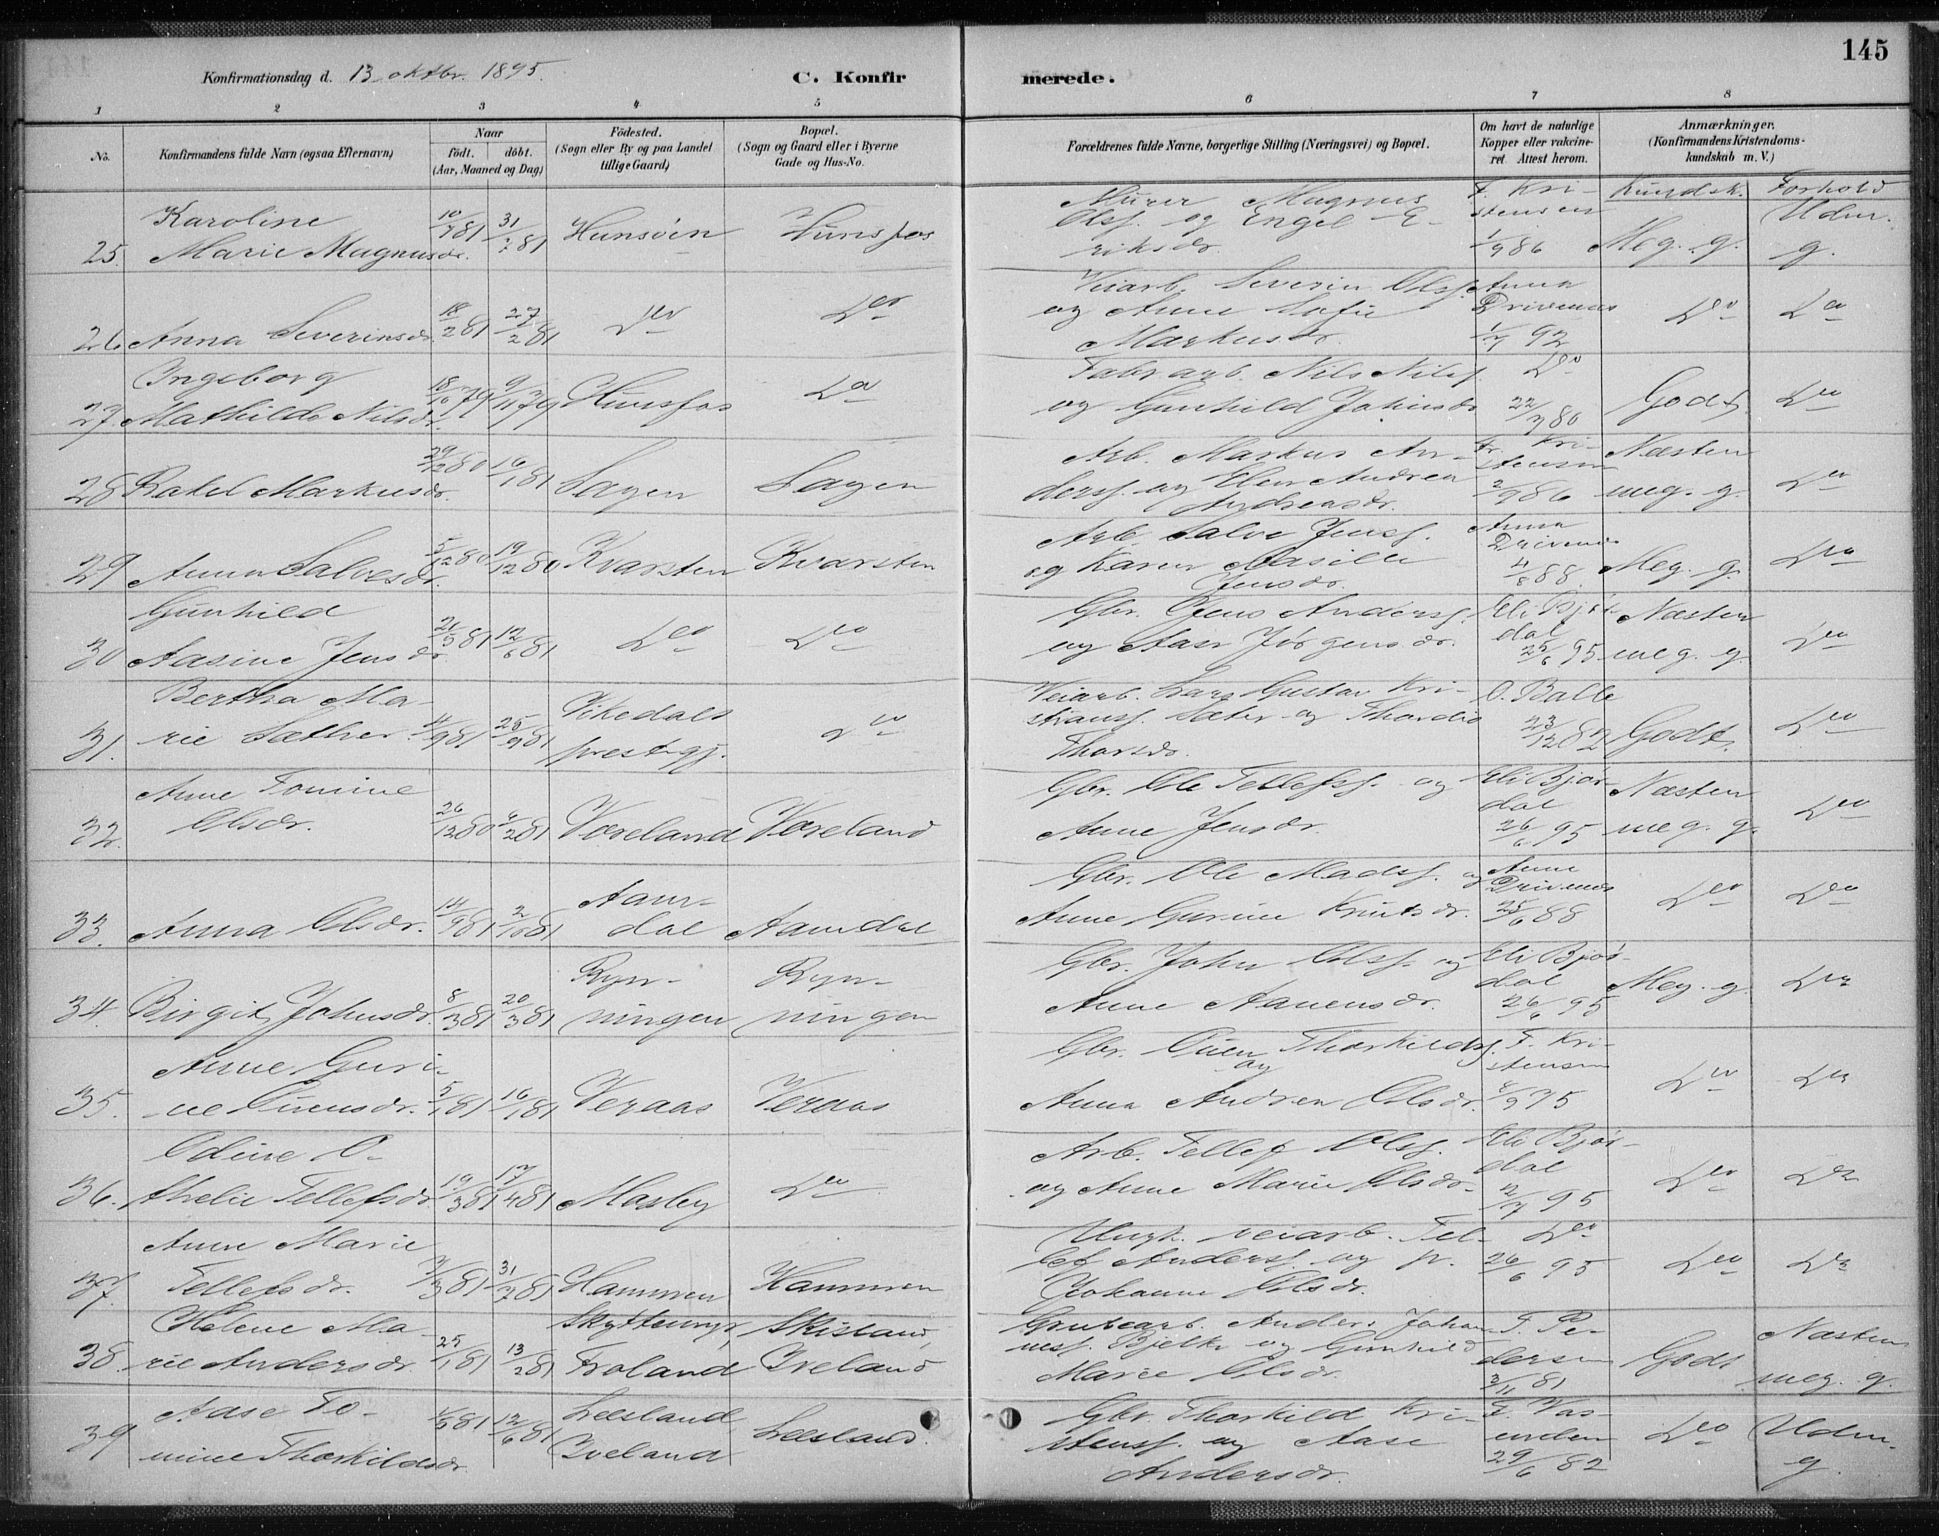 145
Konfirmationsdag d. 13 oktbr. 1895.
C. Konfirmerede.
1 2 3 4 5 6 7 8
No.
Konfirmandens fulde Navn (ogsaa Efternavn)
Naar
födt. döbt.
(Aar, Maaned og Dag)
Födested.
(Sogn eller By og paa Landet
tillige Gaard)
Bopæl.
(Sogn og Gaard eller i Byerne
Gade og Hus-No.
Forældrenes fulde Navne, borgerlige Stilling (Næringsvei) og Bopæl.
Om havt de naturlige
Kopper eller vakcine-
ret. Attest herom.
Anmærkninger.
(Konfirmandens Kristendoms-
kundskab m. V.)
Kundsk. Forhold
25. Karoline
Marie Magnusdr. 31/7 81 Hunsöen Hunsfos
Murer Magnus
Olsf. og Engel E-
riksdr.
F. Kri-
stensen
1/9 86
Meg. g.
Udm.
g.
26 Anna Severinsdr. 18/2 81 27/2 81 Do Do
Veiarb. Severin Olsf.
og Anne Sofie
Markusdr.
Anna
Drivenes
1/7 92
Do Do
27 Ingeborg
Mathilde Nilsdr. 9/11 79 Hunsfos Do
Fabrarb. Nils Nilsf.
og Gunhild Johnsdr
Do
Godt Do
28 Rakel Markusdr. 29/12 80 16/1 81 Sagen Sagen
Arb. Markus An-
dersf. og Elen Andrea
Andreasdr.
Fr. Kri-
stensen
2/9 86
Næsten
meg. g.
Do
29 Anna Salvesdr. 5/12 80 19/12 80 Kvarsten Kvarsten
Arb. Salve Jensf.
og Karen Aasille
Jensdr.
Anna
Drivenes
4/8 88
Meg. g. Do
30 Gunhild
Aasine Jensdr. 21/5 81 12/6 81 Do Do
Gbr. Jens Andersf.
og Aase Jörgensdr.
Eli Björ-
dal
25/6 95
Næsten
meg. g.
Do
31. Bertha Ma-
rie Sæther 4/9 81 25/9 81
Vikedals
prestegj.
Do
Veiarb. Lars Gustav Kri-
stiansf. Sæter og Thordis
Thorsdr.
O. Balle
23/12 82
Godt. Do
32. Anne Tomine
Olsdr. 26/12 80 6/2 81 Væreland Væreland
Gbr. Ole Tellefsf. og
Anne Jensdr
Eli Bjør-
dal
26/6 95
Næsten
meg. g.
Do
33. Anna Olsdr. 14/9 81 2/10 81
Aam-
dal Aamdal
Gbr. Ole Madsf. og
Anne Gurine Knutsdr.
Anne
Drivenes
25/6 88
Do Do
34. Birgit Johnsdr. 8/3 81 20/3 81
Ryn-
ningen
Ryn-
ningen
Gbr. John Olsf. og
Anne Aanensdr.
Eli Bjør-
dal
26/6 95
Meg. g. Do
35. Anne Guri-
ne Ouensdr. 5/1 81 16/1 81 Veraas Veraas
Gbr. Ouen Thorkildsf.
og
Anna Andrea Olsdr.
F. Kri-
stensen
Do Do
36. Odine O-
thelie Tellefsdr. 19/3 81 17/4 81 Mosby Do
Arb. Tellef Olsf.
og Anne Marie Olsdr.
Eli Bjør-
dal
12/7 95
Do Do
37. Anne Marie
Tellefsdr. 31/7 81 Hammen Hammen
Ungk. veiarb. Tel-
lef Andersf. og p.
Johanne Olsdr.
Do
26/6 95
Do Do
38. Helene Ma-
rie Andersdr 25/1 81 13/2 81
Skyttemyr,
Froland
Skisland,
Iveland
Grubearb. Anders Johan-
nesf. Bjelke og Gunhild
Marie Olsdr.
T. Pe-
dersen
3/11 81
Godt
Næsten
meg. g.
39 Aase To-
mine Thorkildsdr. 12/6 81
Leesland,
Iveland
Leesland.
Gbr. Thorkild Kri-
stensf. og Aase
Andersdr.
29/6 82
Do
Udm.
g.